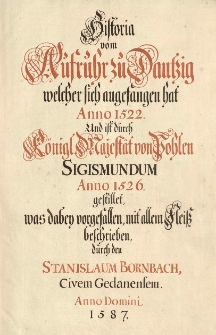 Historia
vom
Aufruhr zu Dantzig
welcher sich angefangen hat
Anno 1522.
Und ist durch
Königl Majestät von Pohlen
SIGISMUNDUM
Anno 1526.
gestillet,
was dabey vorgefallen, mit allem Fleiß
beschrieben,
durch den
STANISLAUM BORNBACH,
Civem Gedanensem.
Anno Domini.
1587.